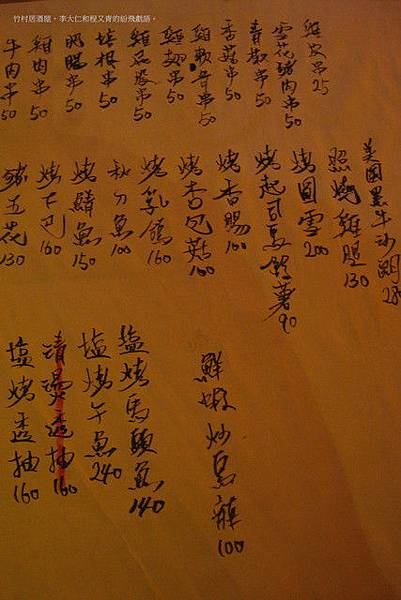 竹村居酒屋。李大仁和程又青的紛飛戲語。
雞皮串25
雪花豬肉串50
青椒串50
香菇串50
雞軟骨串50
雞翅串50
串50
培根串50
串50
雞肉串50
牛肉串50
美國黑牛沙朗
照燒雞腿130
烤圓雪200
烤起司馬鈴薯90
烤香腸100
烤杏包菇100
烤乳鴿160
秋刀魚100
烤鯖魚150
烤下巴160
豬五花130
鮮蝦炒烏龍100
塩烤馬頭魚140
塩烤午魚240
清燙透抽160
塩烤透抽160